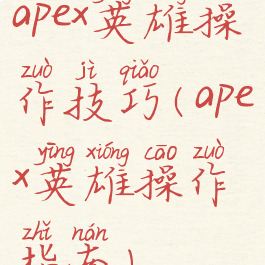 apex英雄操
zuò jì qiǎo
作技巧(ape
yīng xióng cāo zuò
x英雄操作
zhǐ nán
指南)